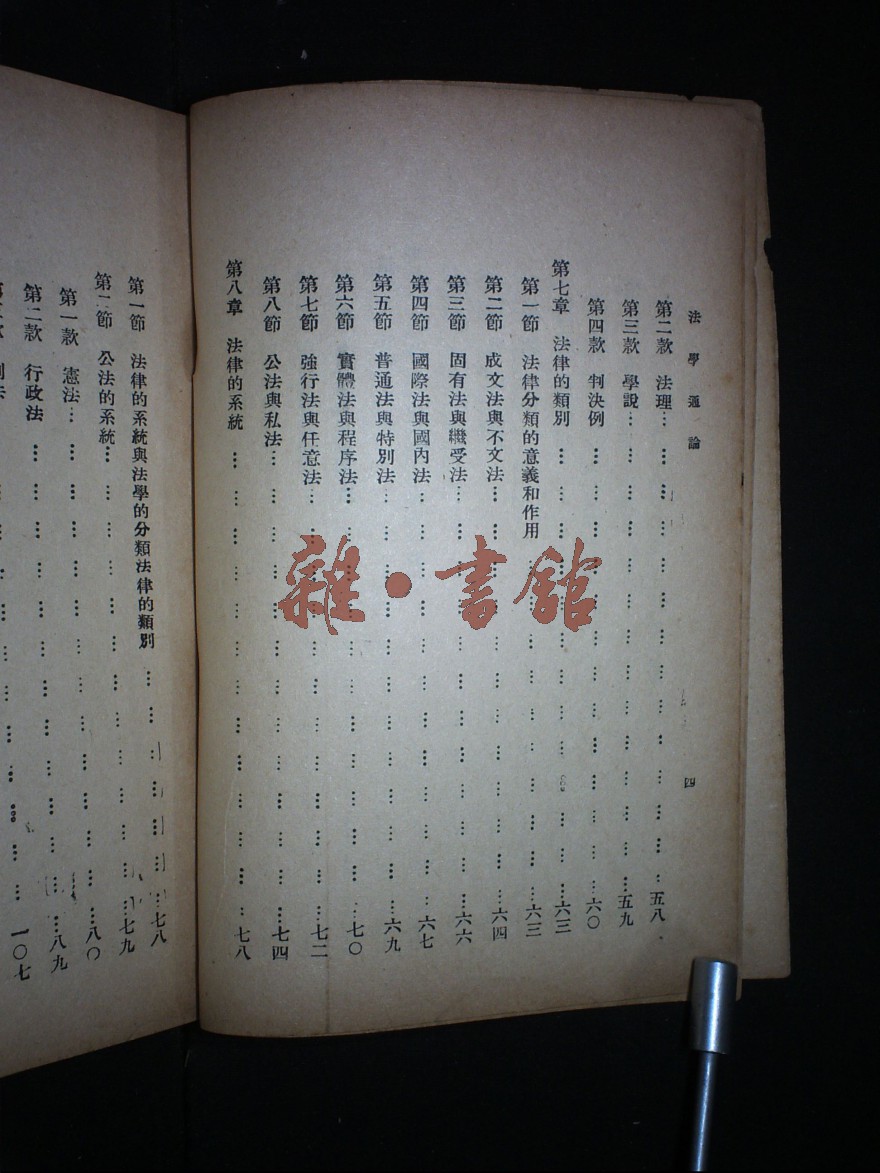 法學通論 四
第二款 法理 … … … 五八
第三款 學說 … … … 五九
第四款 判決例 … … … 六〇
第七章 法律的類別 … … … 六三
第一節 法律分類的意義和作用 … … … 六三
第二節 成文法與不文法 … … … 六四
第三節 固有法與繼受法 … … … 六六
第四節 國際法與國內法 … … … 六七
第五節 普通法與特別法 … … … 六九
第六節 實體法與程序法 … … … 七〇
第七節 強行法與任意法 … … … 七二
第八節 公法與私法 … … … 七四
第八章 法律的系統 … … … 七八
第一節 法律的系統與法學的分類法律的類別 … … … 七八
第二節 公法的系統 … … … 七九
第一款 憲法 … … … 八〇
第二款 行政法 … … … 八九
一〇七
雜·書館